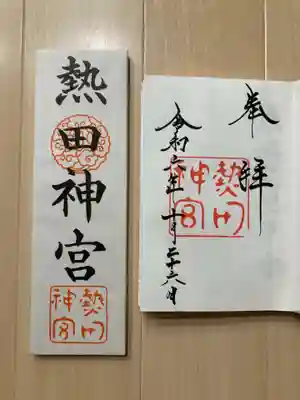 熱田神宮
熱田
神宮
奉拝
熱田
神宮
令和六年十一月二十六日